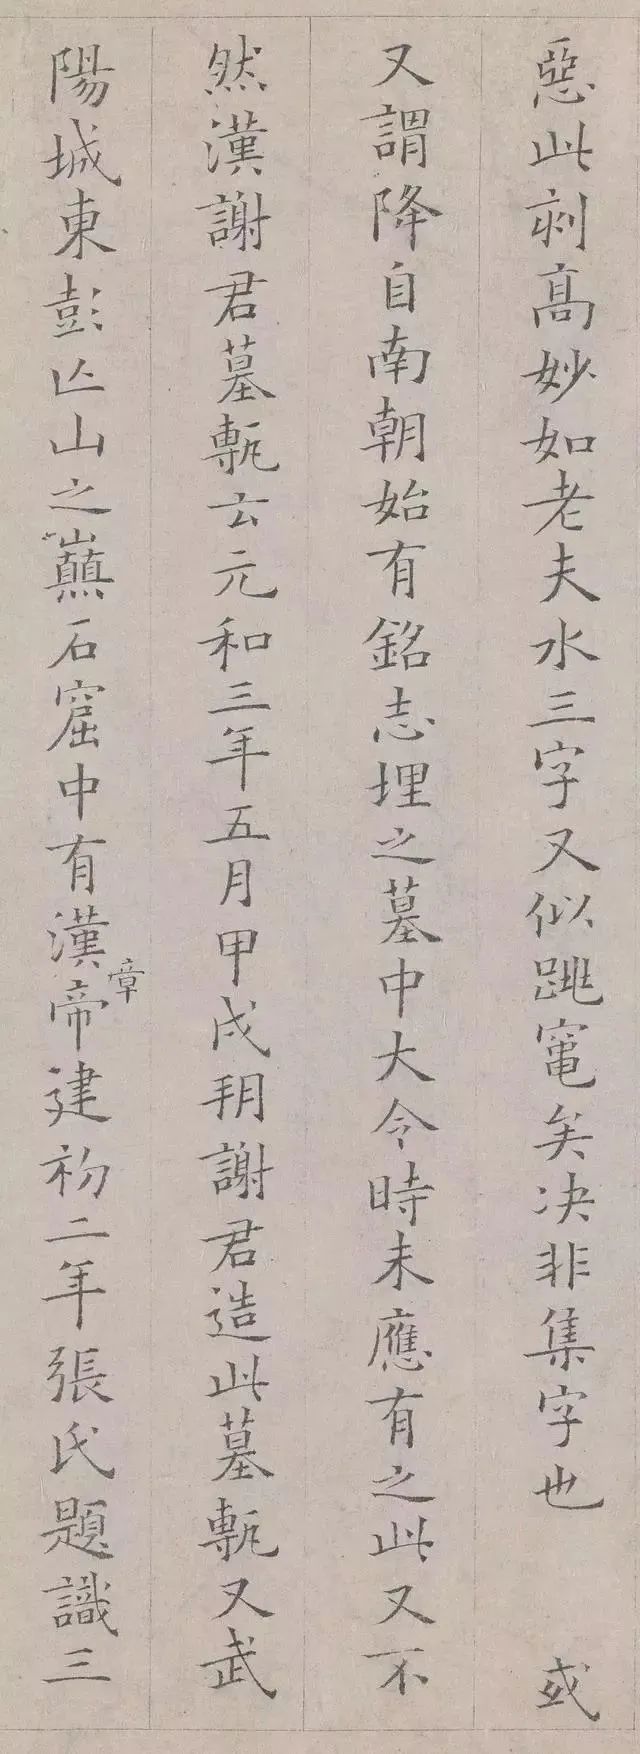 惡此刻高妙如老夫水三字又似跳竈矣决非集字也 或
又謂降自南朝始有銘志埋之墓中大令時未應有之此又不
然漢謝君墓甎云元和三年五月甲戌朔謝君造此墓甎又武
陽城東彭亾山之巔石窟中有漢章帝建初二年張氏題識三